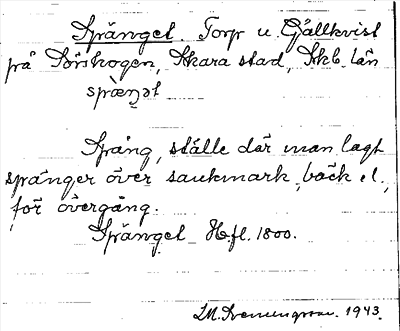 Spånget. Torp u. Gällkvist
på Sörskogen, Skara stad, Skb. län
spæŋət
Spång, ställe där man lagt
spänger över sankmark, bäck el.,
för övergång.
Spånget Hfl. 1800.
1943.